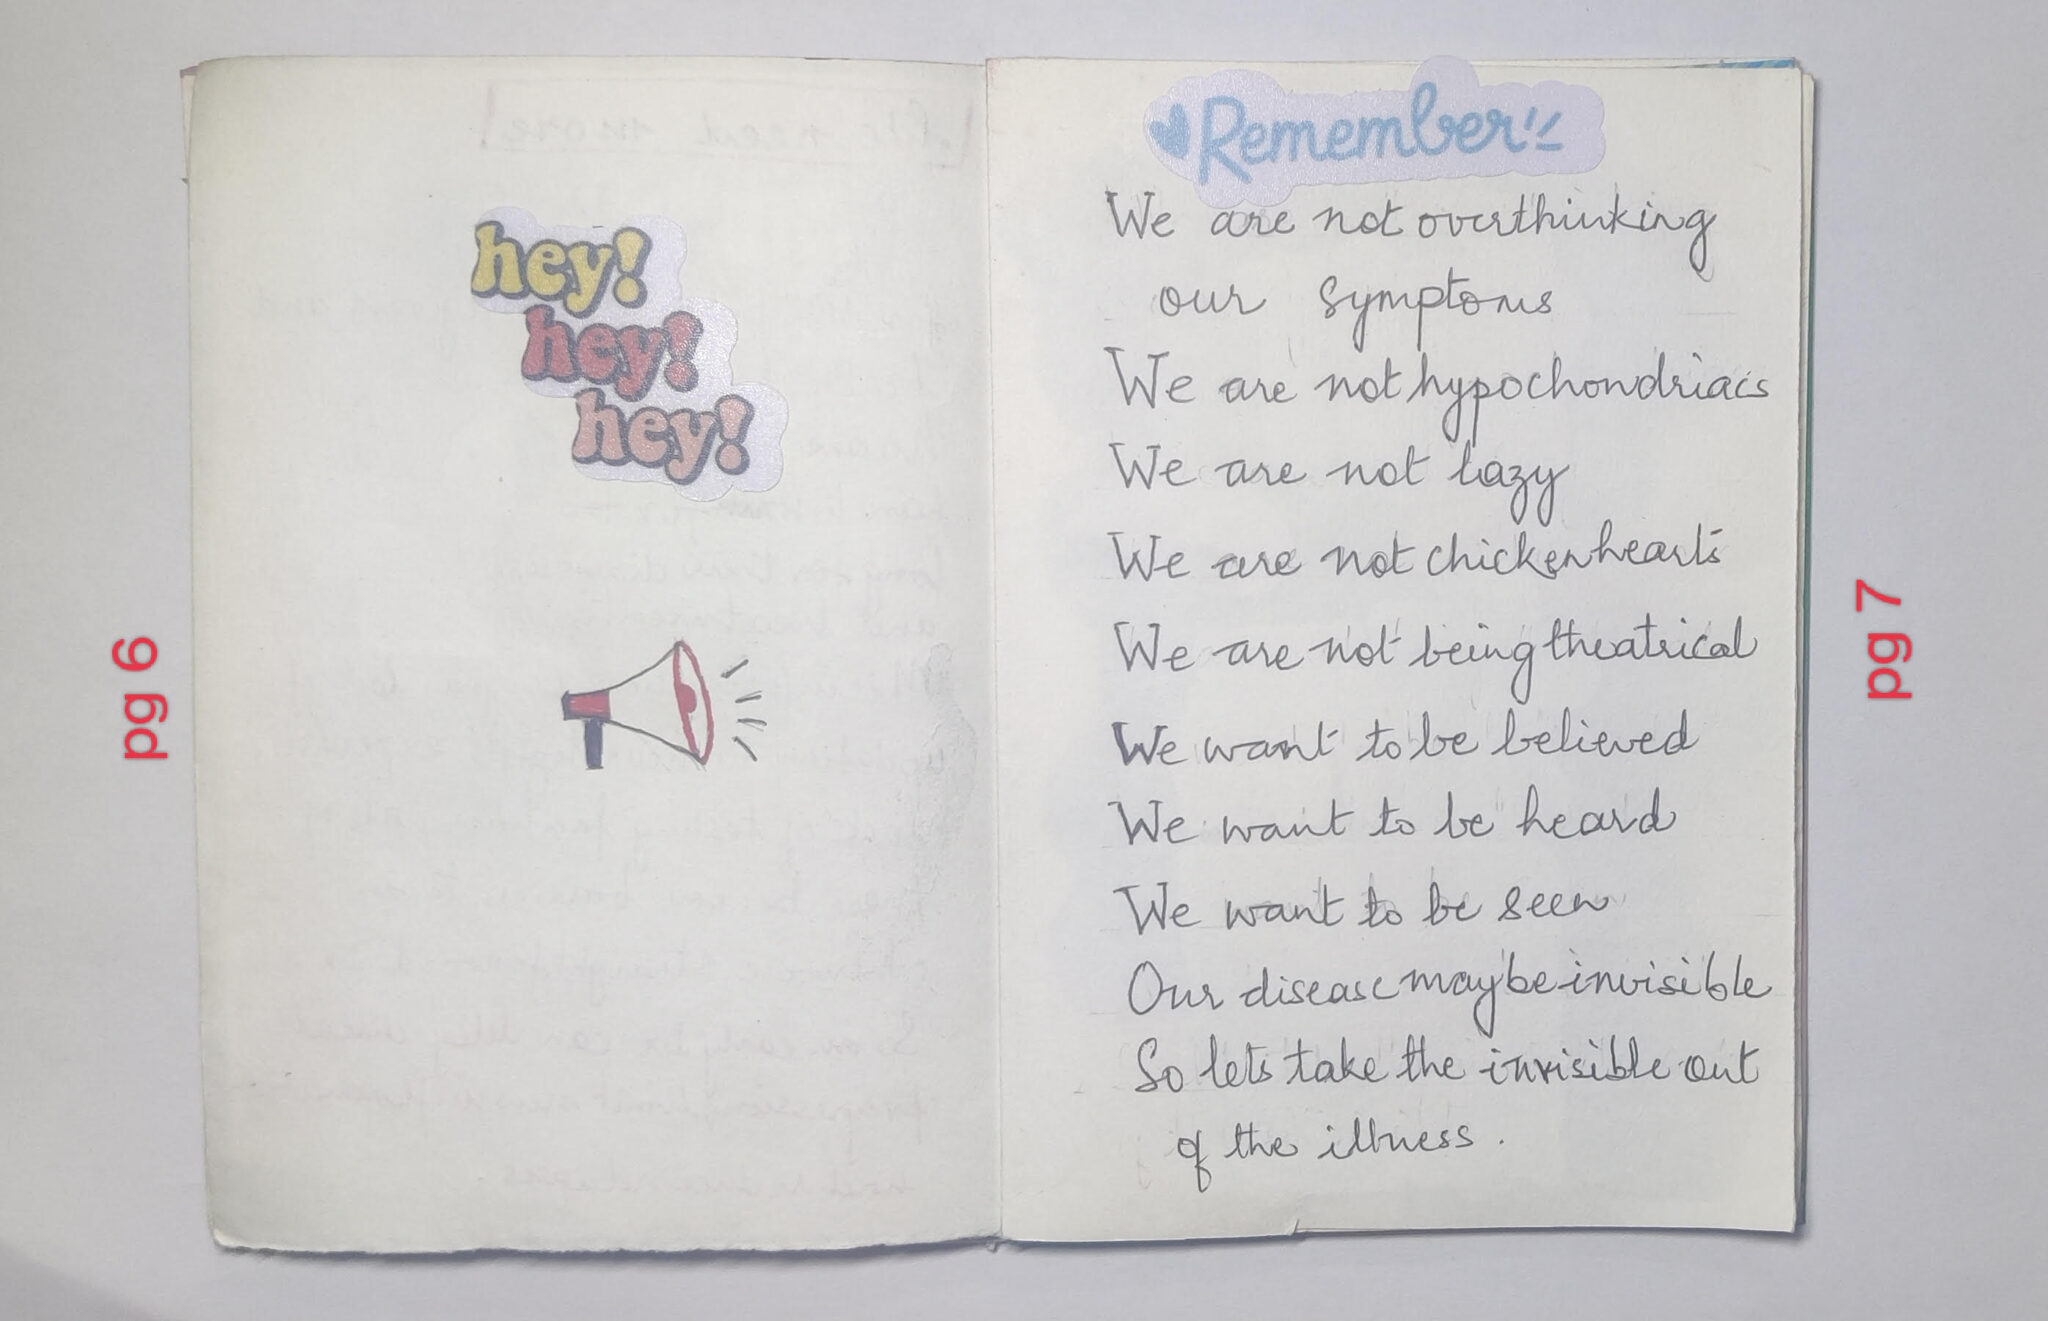 pg 6
hey!
hey!
hey!
Remember
We are not overthinking
our symptoms
We are not hypochondriacs
We are not lazy
We are not chickenhearts
We are not being theatrical
We want to be believed
We want to be heard
We want to be seen
Our disease maybe invisible
So lets take the invisible out
of the illness.
pg 7